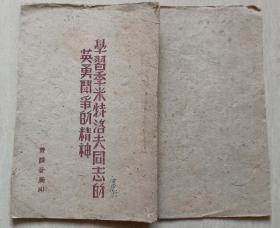 學習季米特洛夫同志的
英勇鬥爭的精神